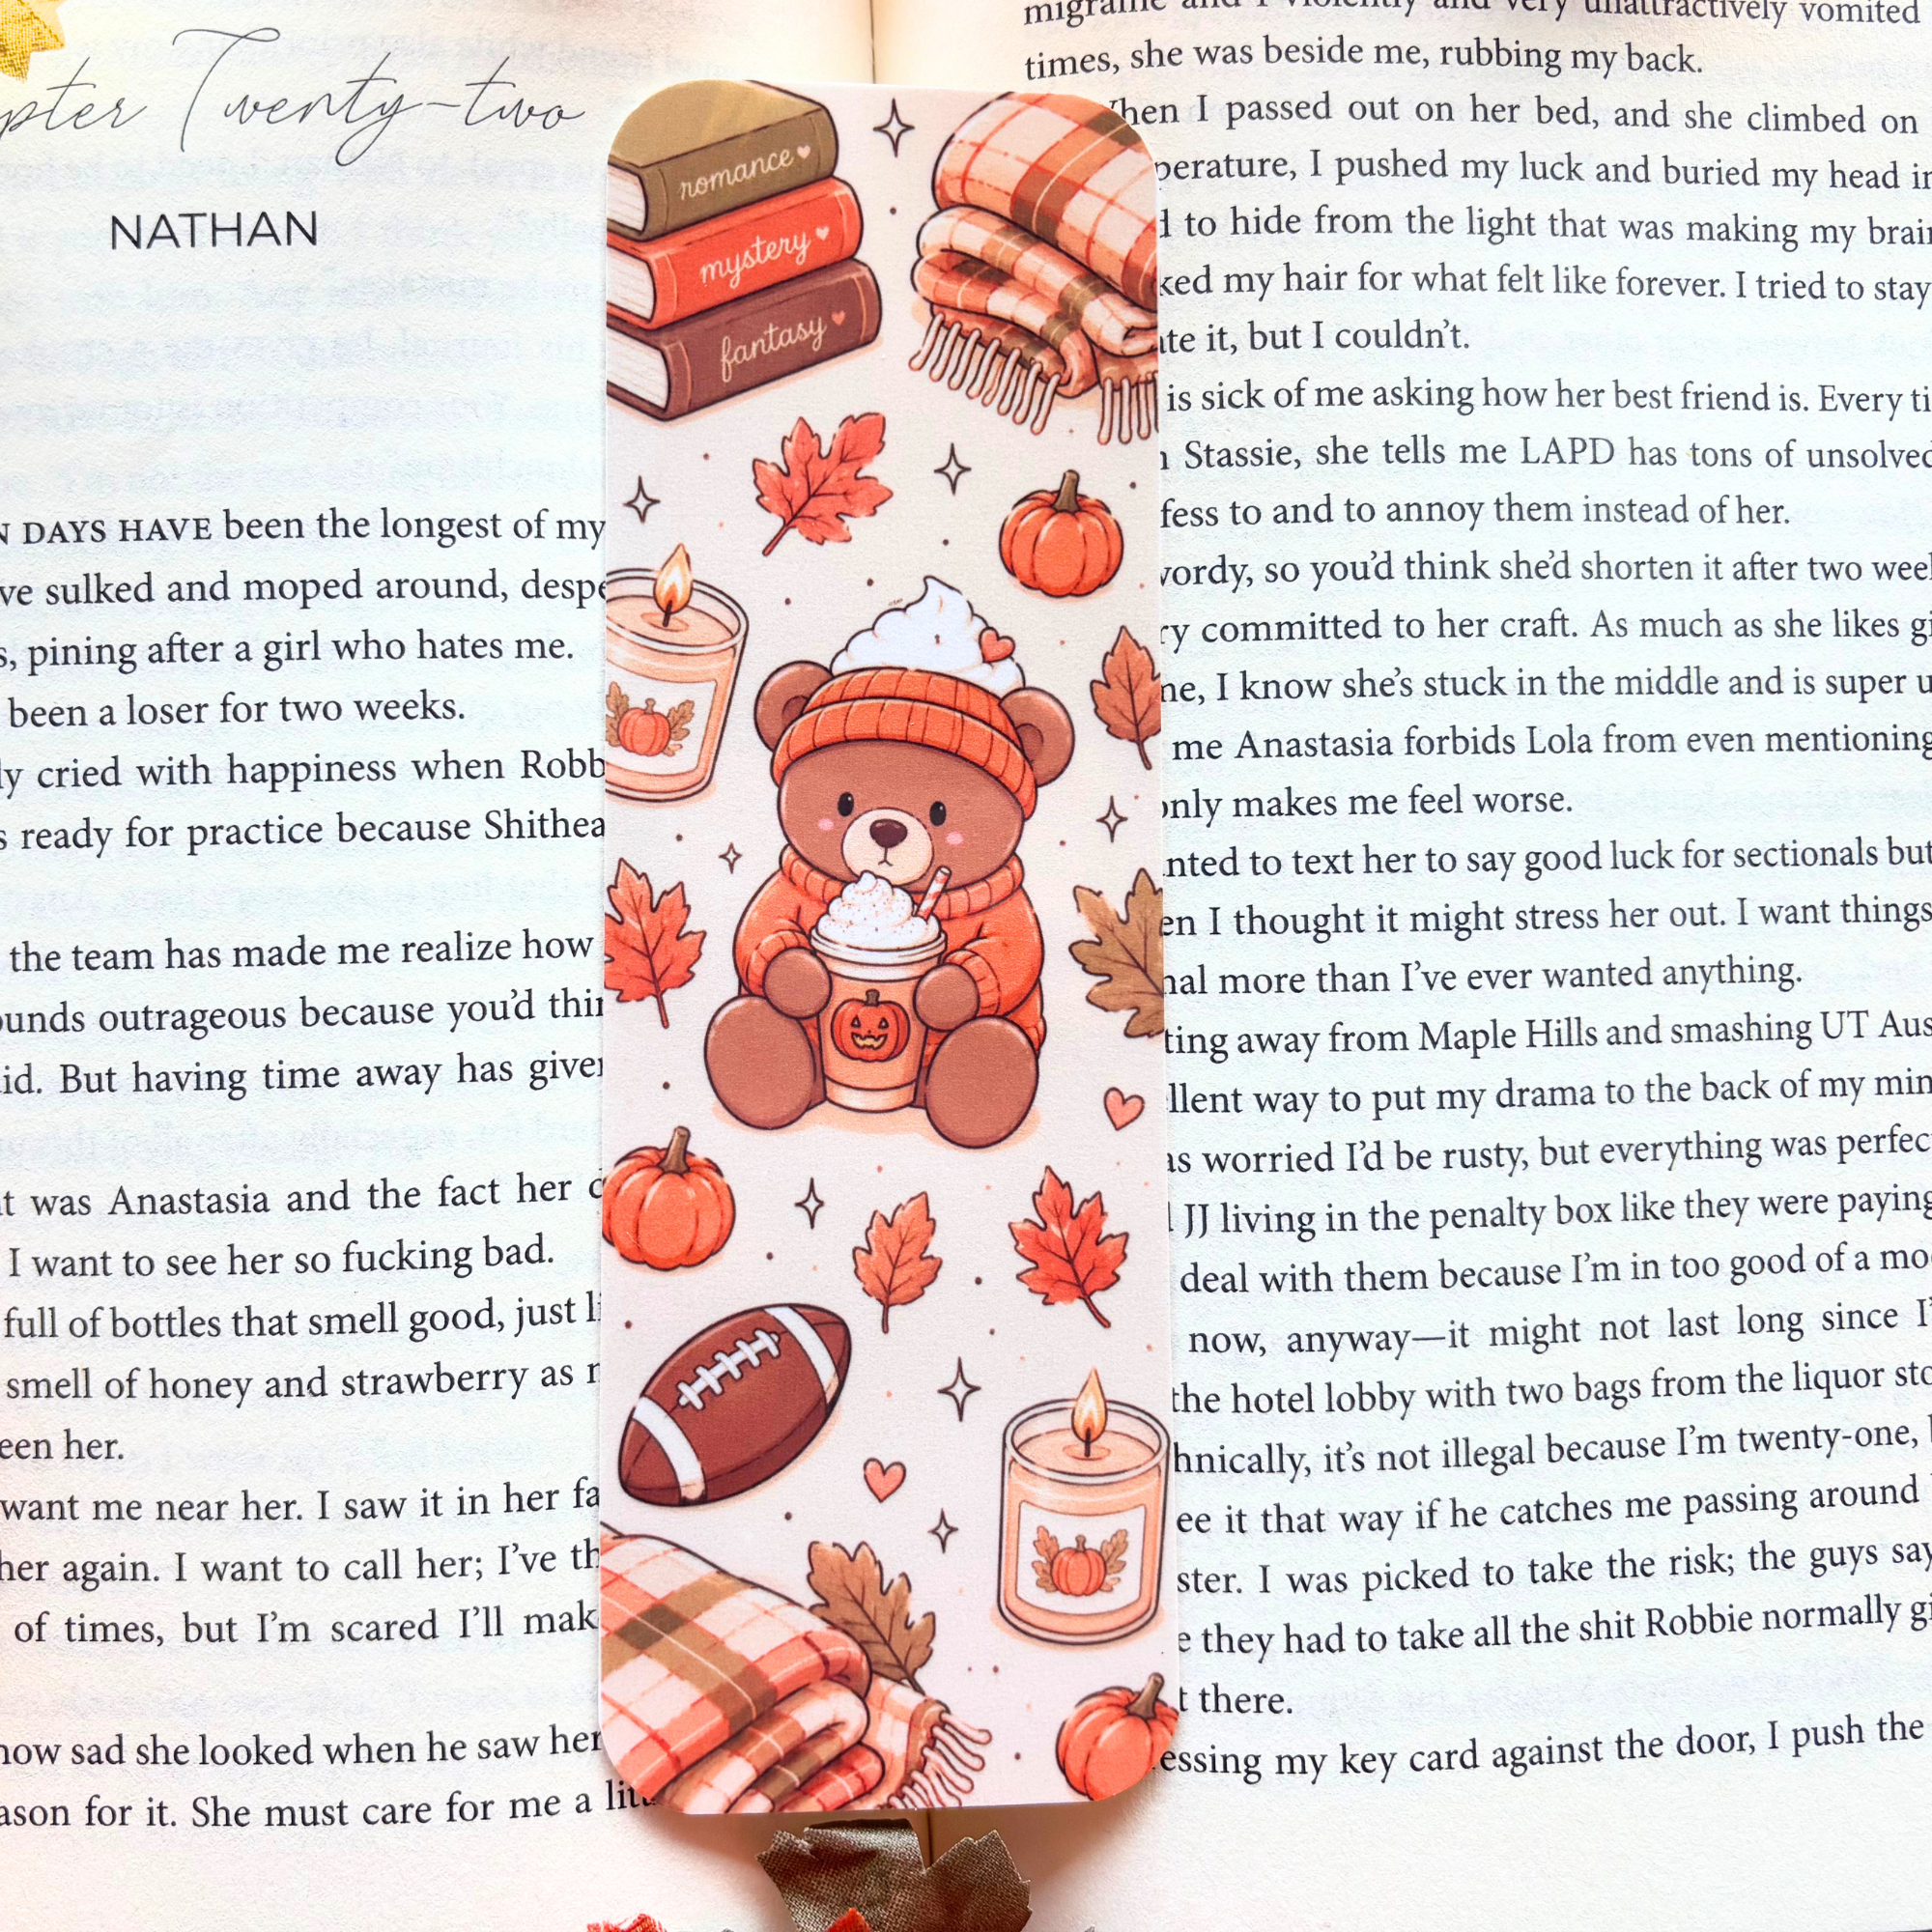 Twenty-two
NATHAN
DAYS HAVE been the longest of my
sulked and moped around,
pining after a girl who hates me.
been a loser for two weeks.
cried with happiness when
ready for practice because
the team has made me realize how
outrageous because you'd
But having time away has
was Anastasia and the fact her
I want to see her so fucking bad.
full of bottles that smell good, just
smell of honey and strawberry as
her.
want me near her. I saw it in her
her again. I want to call her; I've
of times, but I'm scared I'll
sad she looked when he saw her
for it. She must care for me a
romance
mystery
fantasy
migraine and I violently and very unattractively vomited
times, she was beside me, rubbing my back.
When I passed out on her bed, and she climbed on
I pushed my luck and buried my head
to hide from the light that was making my
my hair for what felt like forever. I tried to stay
it, but I couldn't.
is sick of me asking how her best friend is. Every
Stassie, she tells me LAPD has tons of
to and to annoy them instead of her.
so you'd think she'd shorten it after two
committed to her craft. As much as she likes
I know she's stuck in the middle and is super
me Anastasia forbids Lola from even mentioning
only makes me feel worse.
to text her to say good luck for sectionals but
I thought it might stress her out. I want things
more than I've ever wanted anything.
away from Maple Hills and smashing UT
way to put my drama to the back of my
worried I'd be rusty, but everything was
JJ living in the penalty box like they were paying
deal with them because I'm in too good of a
now, anyway—it might not last long since
the hotel lobby with two bags from the liquor
it's not illegal because I'm twenty-one,
it that way if he catches me passing around
I was picked to take the risk; the guys say
they had to take all the shit Robbie normally
there.
my key card against the door, I push the